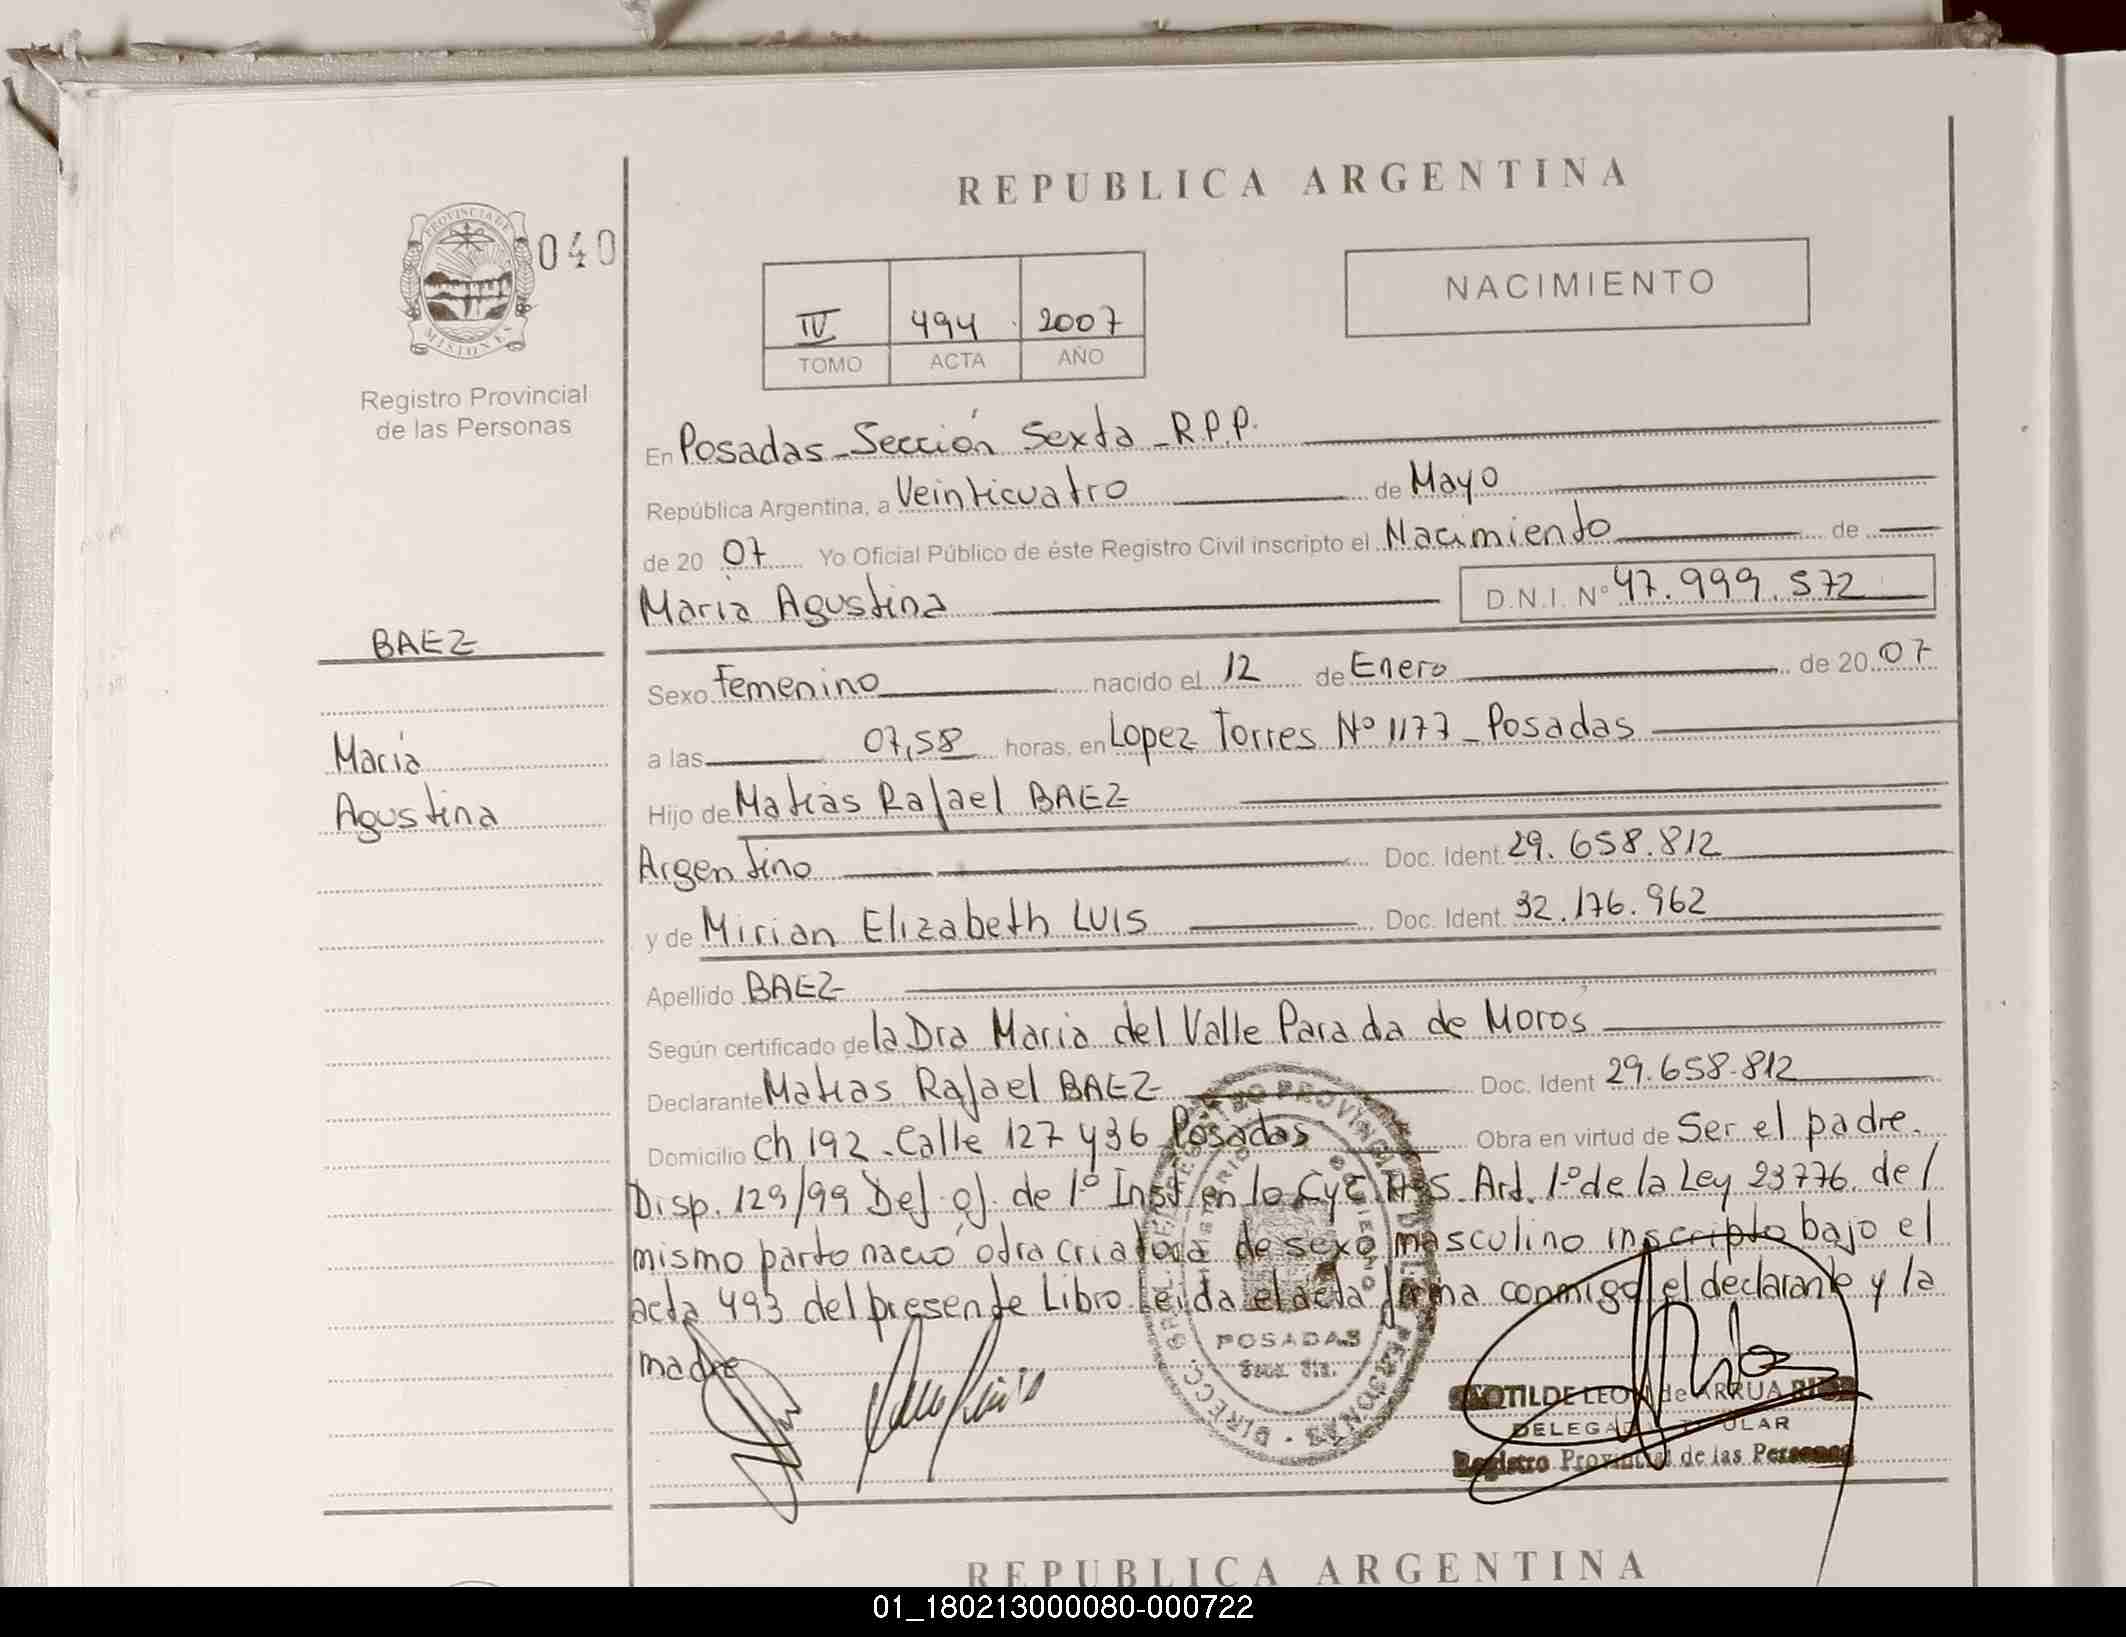 REPUBLICA ARGENTINA
PROVINCIA DE
MISIONES
040
Registro Provincial
de las Personas
NACIMIENTO
IV 494 2007
TOMO ACTA AÑO
En Posadas - Sección Sexta - R.P.P.
República Argentina, a Veinticuatro de Mayo
de 20 07 Yo Oficial Público de éste Registro Civil inscripto el Nacimiento de
Maria Agustina D.N.I. Nº 47.999.572
BAEZ
Maria
Agustina
Sexo Femenino nacido el 12 de Enero de 20 07
a las 07,58 horas, en Lopez Torres Nº 1177 - Posadas
Hijo de Matias Rafael BAEZ
Argentino Doc. Ident. 29.658.812
y de Mirian Elizabeth LUIS Doc. Ident. 32.176.962
Apellido BAEZ
Según certificado de la Dra Maria del Valle Parada de Moros
Declarante Matias Rafael BAEZ Doc. Ident 29.658.812
Domicilio Ch 192 - Calle 127 y 36 Posadas Obra en virtud de Ser el padre.
Disp. 129/99 Def. of. de 1º Inst en lo CyC. Art. 1º de la Ley 23776. del
mismo parto nació otra criatura de sexo masculino inscripto bajo el
acta 493 del presente Libro Leida el acta firma conmigo el declarante y la
madre
POSADAS
Secc. 6ta.
CLOTILDE LEON de ARRUA RIOS
DELEGADA TITULAR
Registro Provincial de las Personas
REPUBLICA ARGENTINA
01_180213000080-000722